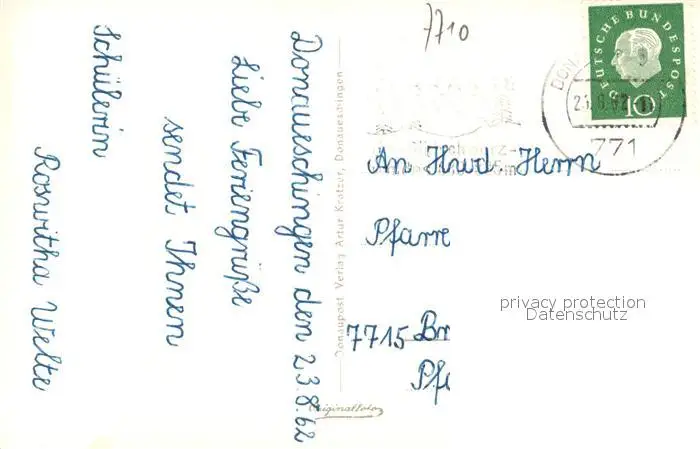 7710
Donaueschingen den 23.8.62
Liebe Feriengrüße
sendet Ihnen
Schülerin
Roswitha Welte
Donaupost Verlag Artur Kratzer, Donaueschingen
Originalfoto
DEUTSCHE BUNDESPOST
10
DON
771
An Hwd. Herrn
Pfarre
7715 Br
Pfa
privacy protection
Datenschutz